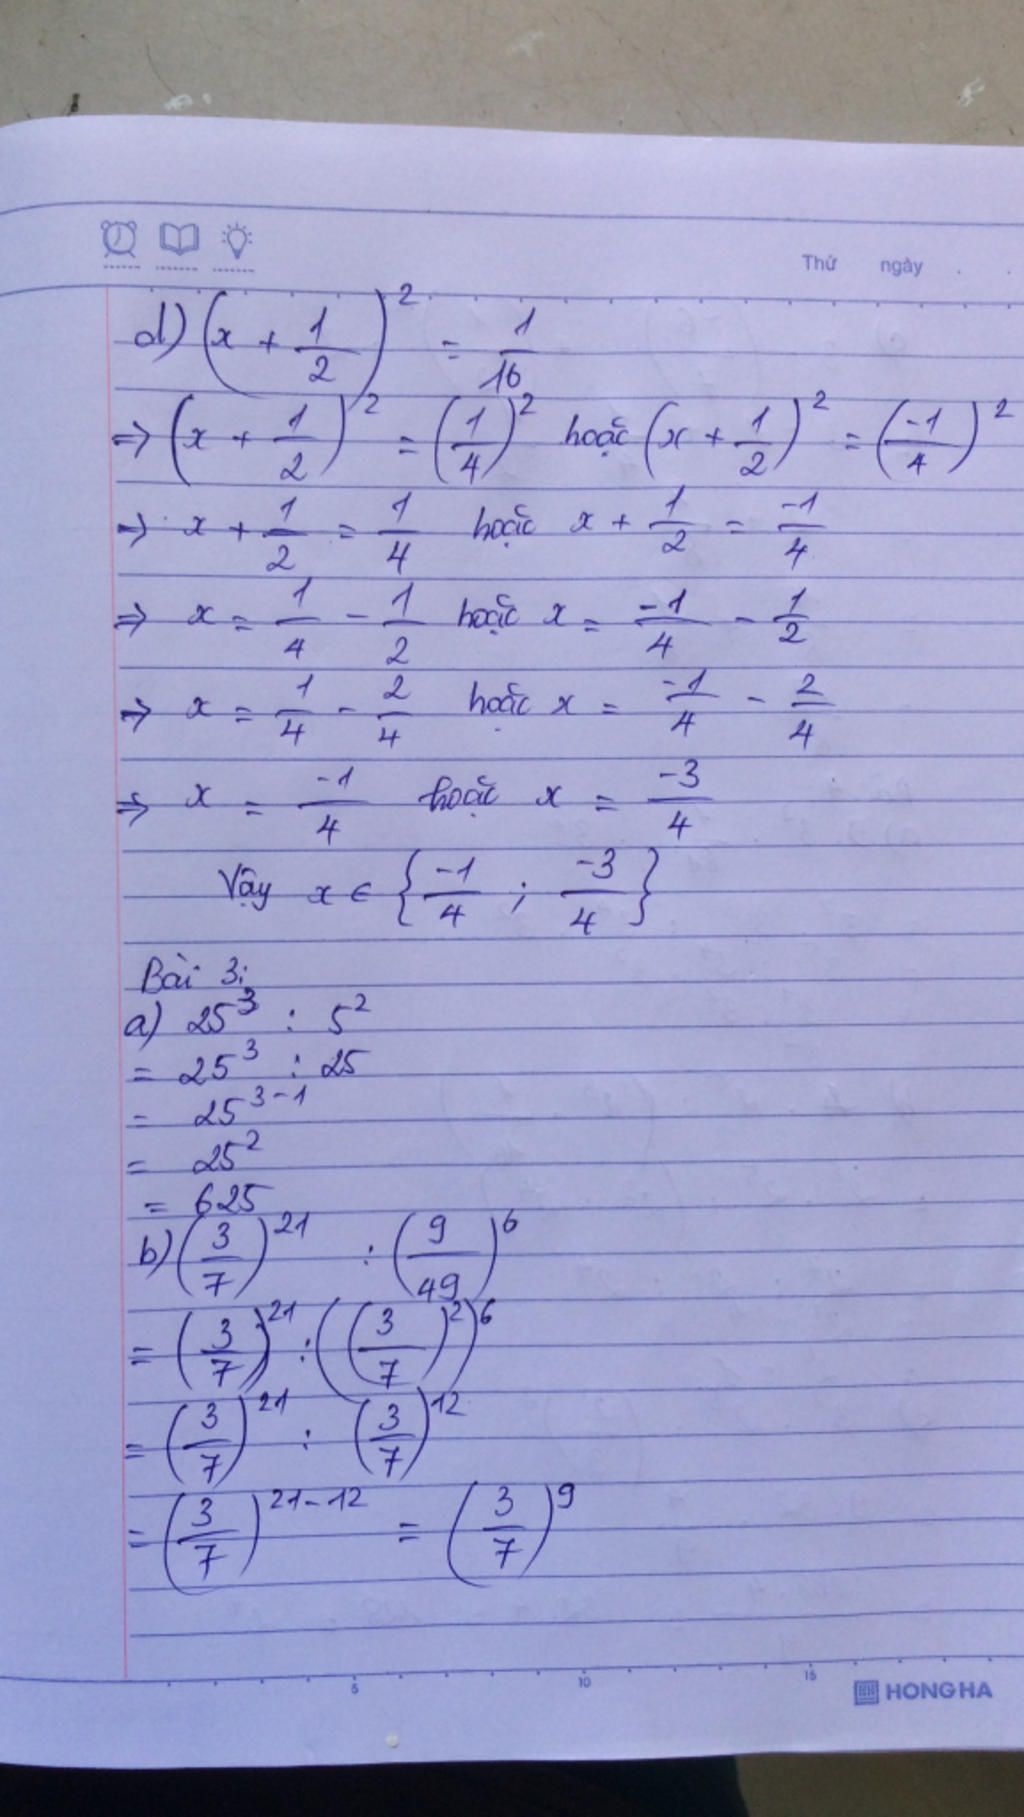 Thứ ngày
d) (x + 1/2)² = 1/16
⇒ (x + 1/2)² = (1/4)² hoặc (x + 1/2)² = (-1/4)²
⇒ x + 1/2 = 1/4 hoặc x + 1/2 = -1/4
⇒ x = 1/4 - 1/2 hoặc x = -1/4 - 1/2
⇒ x = 1/4 - 2/4 hoặc x = -1/4 - 2/4
⇒ x = -1/4 hoặc x = -3/4
Vậy x ∈ {-1/4 ; -3/4}
Bài 3:
a) 25³ : 5²
= 25³ : 25
= 25³⁻¹
= 25²
= 625
b) (3/7)²¹ : (9/49)⁶
= (3/7)²¹ : ((3/7)²)⁶
= (3/7)²¹ : (3/7)¹²
= (3/7)²¹⁻¹² = (3/7)⁹
5 10 15
HONG HA